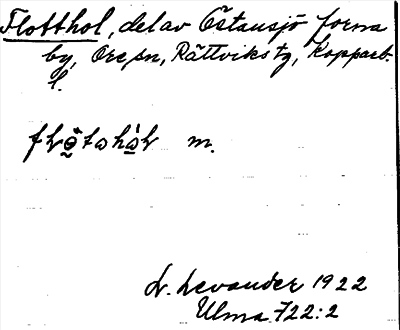 Flotthol, del av Östansjö forna
by, Ore sn, Rättviks tg, Kopparb.
l.
m.
L. Levander 1922
Ulma 722:2